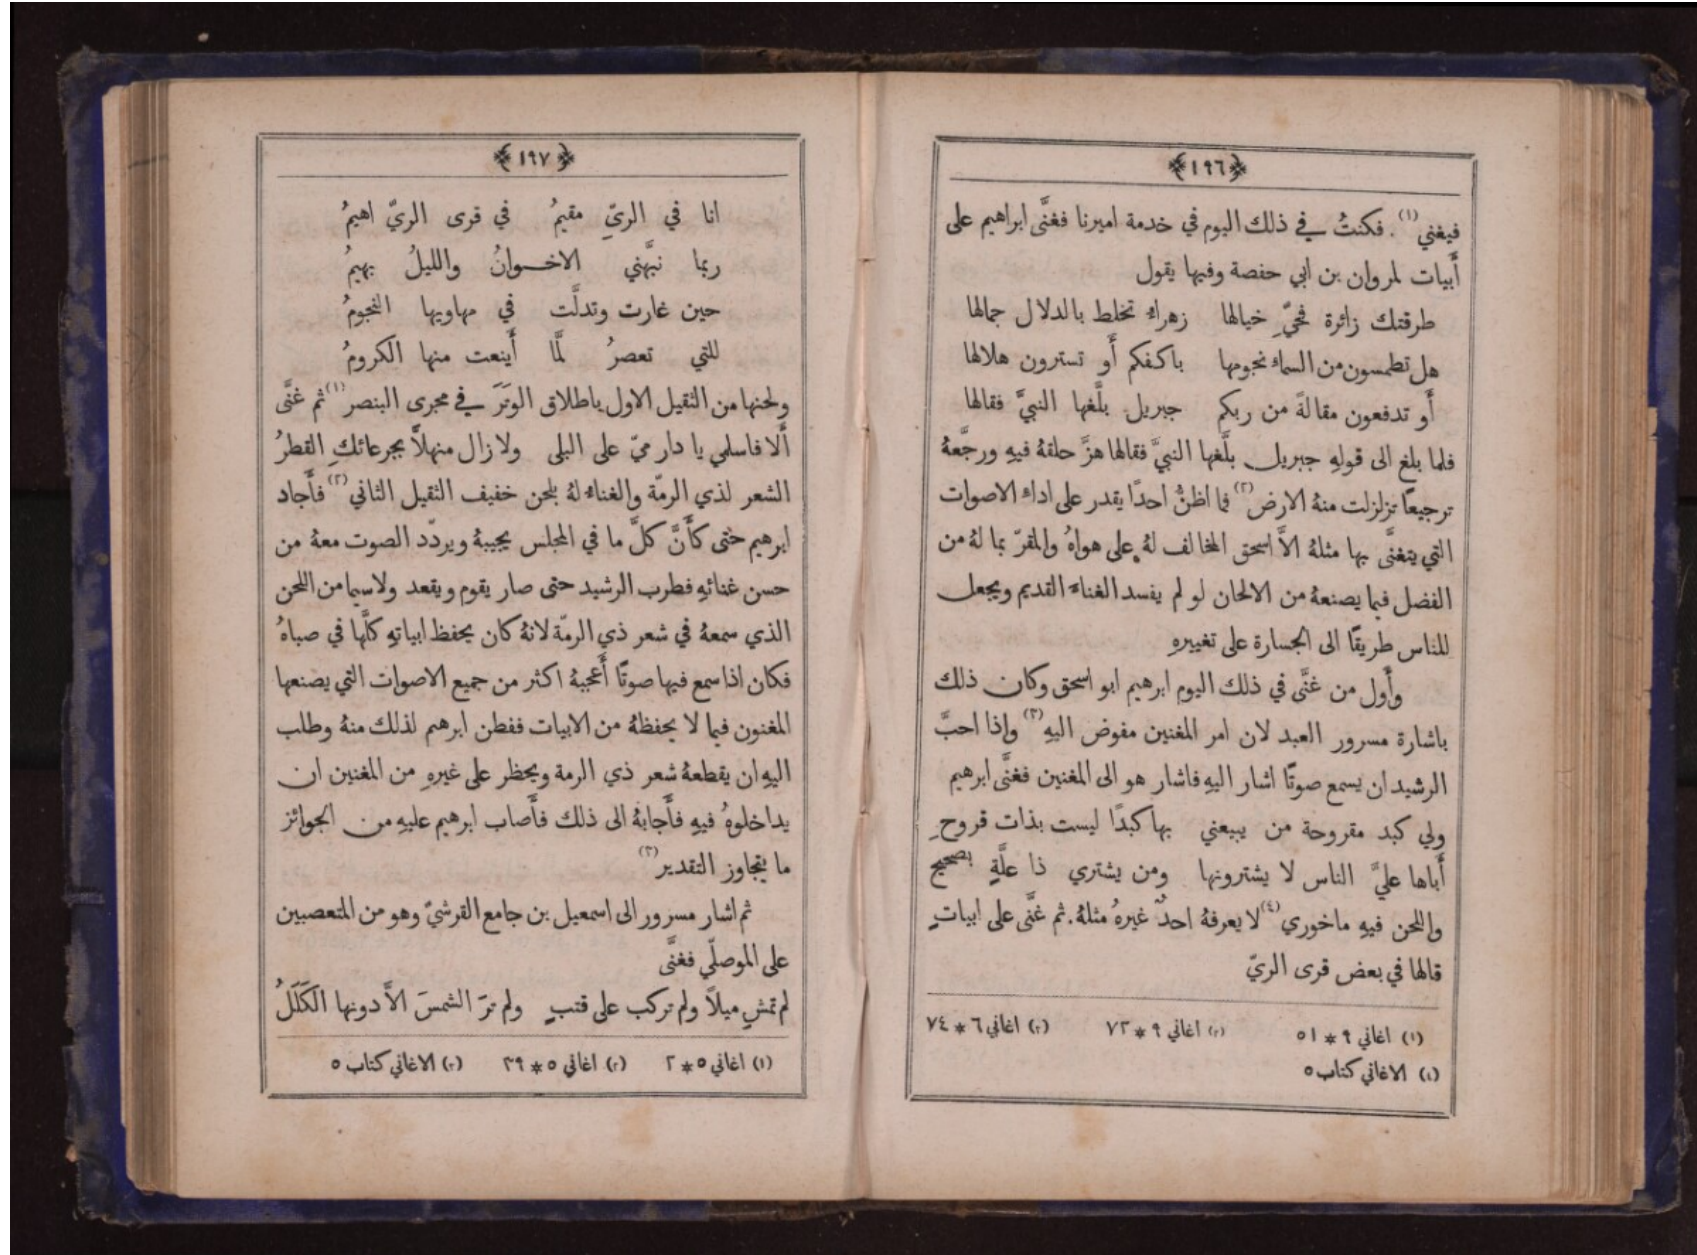 ﴿١٩٦﴾
فيغني (١). فكنتُ في ذلك اليوم في خدمة اميرنا فغنَّى ابراهيم على
أَبيات لمروان بن ابي حفصة وفيها يقول
طرقتك زائرة فحيِّ خيالها زهراء تخلط بالدلال جمالها
هل تطمسون من السماء نجومها باكفكم أَو تسترون هلالها
أَو تدفعون مقالةً من ربكم جبريل بلَّغها النبيَّ فقالها
فلما بلغ الى قولهِ جبريل بلَّغها النبيَّ فقالها هزَّ حلقهُ فيهِ ورجَّعهُ
ترجيعًا تزلزلت منهُ الارض (٢) فما اظنُّ احدًا يقدر على اداء الاصوات
التي يتغنَّى بها مثلهُ الاَّ اسحق المخالف لهُ على هواهُ والمقرّ بما لهُ من
الفضل فيما يصنعهُ من الالحان لو لم يفسد الغناء القديم ويجعل
للناس طريقًا الى الجسارة على تغييرهِ
وأَول من غنَّى في ذلك اليوم ابرهيم ابو اسحق وكان ذلك
باشارة مسرور العبد لان امر المغنين مفوض اليهِ (٣) واذا احبَّ
الرشيد ان يسمع صوتًا اشار اليهِ فاشار هو الى المغنين فغنَّى ابرهيم
ولي كبد مقروحة من يبيعني بها كبدًا ليست بذات قروحِ
أَباها عليَّ الناس لا يشترونها ومن يشتري ذا علَّةٍ بصحيحِ
واللحن فيهِ ماخوري (٤) لا يعرفهُ احدٌ غيرهُ مثلهُ. ثم غنَّى على ابياتٍ
قالها في بعض قرى الريّ
(١) اغاني ٩ * ٥١ (٢) اغاني ٩ * ٧٣ (٣) اغاني ٦ * ٧٤
(٤) الاغاني كتاب ٥
﴿١٩٧﴾
انا في الريّ مقيمُ في قرى الريّ اهيمُ
ربما نبَّهني الاخوانُ والليلُ بهيمُ
حين غارت وتدلَّت في مهاويها النجومُ
للتي تعصرُ لمَّا أَينعت منها الكرومُ
ولحنها من الثقيل الاول باطلاق الوتَرَ في مجرى البنصر (١) ثم غنَّى
أَلا فاسلمي يا دار ميّ على البلى ولا زال منهلاًّ بجرعائكِ القطرُ
الشعر لذي الرمّة والغناء لهُ بلحن خفيف الثقيل الثاني (٢) فأَجاد
ابرهيم حتى كأَنَّ كلَّ ما في المجلس يجيبهُ ويردّد الصوت معهُ من
حسن غنائهِ فطرب الرشيد حتى صار يقوم ويقعد ولاسيما من اللحن
الذي سمعهُ في شعر ذي الرمّة لانهُ كان يحفظ ابياتهِ كلَّها في صباهُ
فكان اذا سمع فيها صوتًا أَعجبهُ اكثر من جميع الاصوات التي يصنعها
المغنون فيما لا يحفظهُ من الابيات ففطن ابرهم لذلك منهُ وطلب
اليهِ ان يقطعهُ شعر ذي الرمة ويحظر على غيرهِ من المغنين ان
يداخلوهُ فيهِ فأَجابهُ الى ذلك فأَصاب ابرهيم عليهِ من الجوائز
ما يتجاوز التقدير (٣)
ثم اشار مسرور الى اسمعيل بن جامع القرشيّ وهو من المتعصبين
على الموصلّي فغنَّى
لم تمشِ ميلاً ولم تركب على قتبٍ ولم ترَ الشمسَ الاَّ دونها الكَلَلُ
(١) اغاني ٥ * ٢ (٢) اغاني ٥ * ٣٩ (٣) الاغاني كتاب ٥